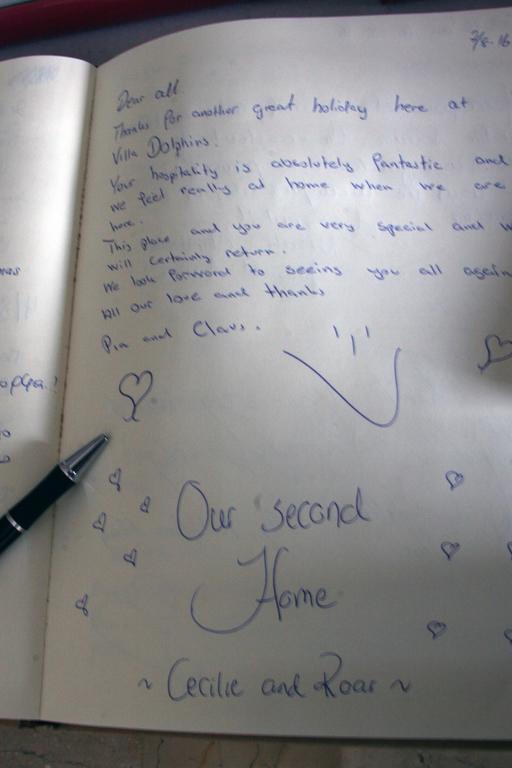 2/8-16
Dear all.
Thanks for another great holiday here at
Villa Dolphins.
Your hospitality is absolutely fantastic and
we feel really at home when we are
here.
This place and you are very special and w
will certainly return.
We look forward to seeing you all again
All our love and thanks
Pia and Claus.
Our second
Home
~ Cecilie and Roar ~